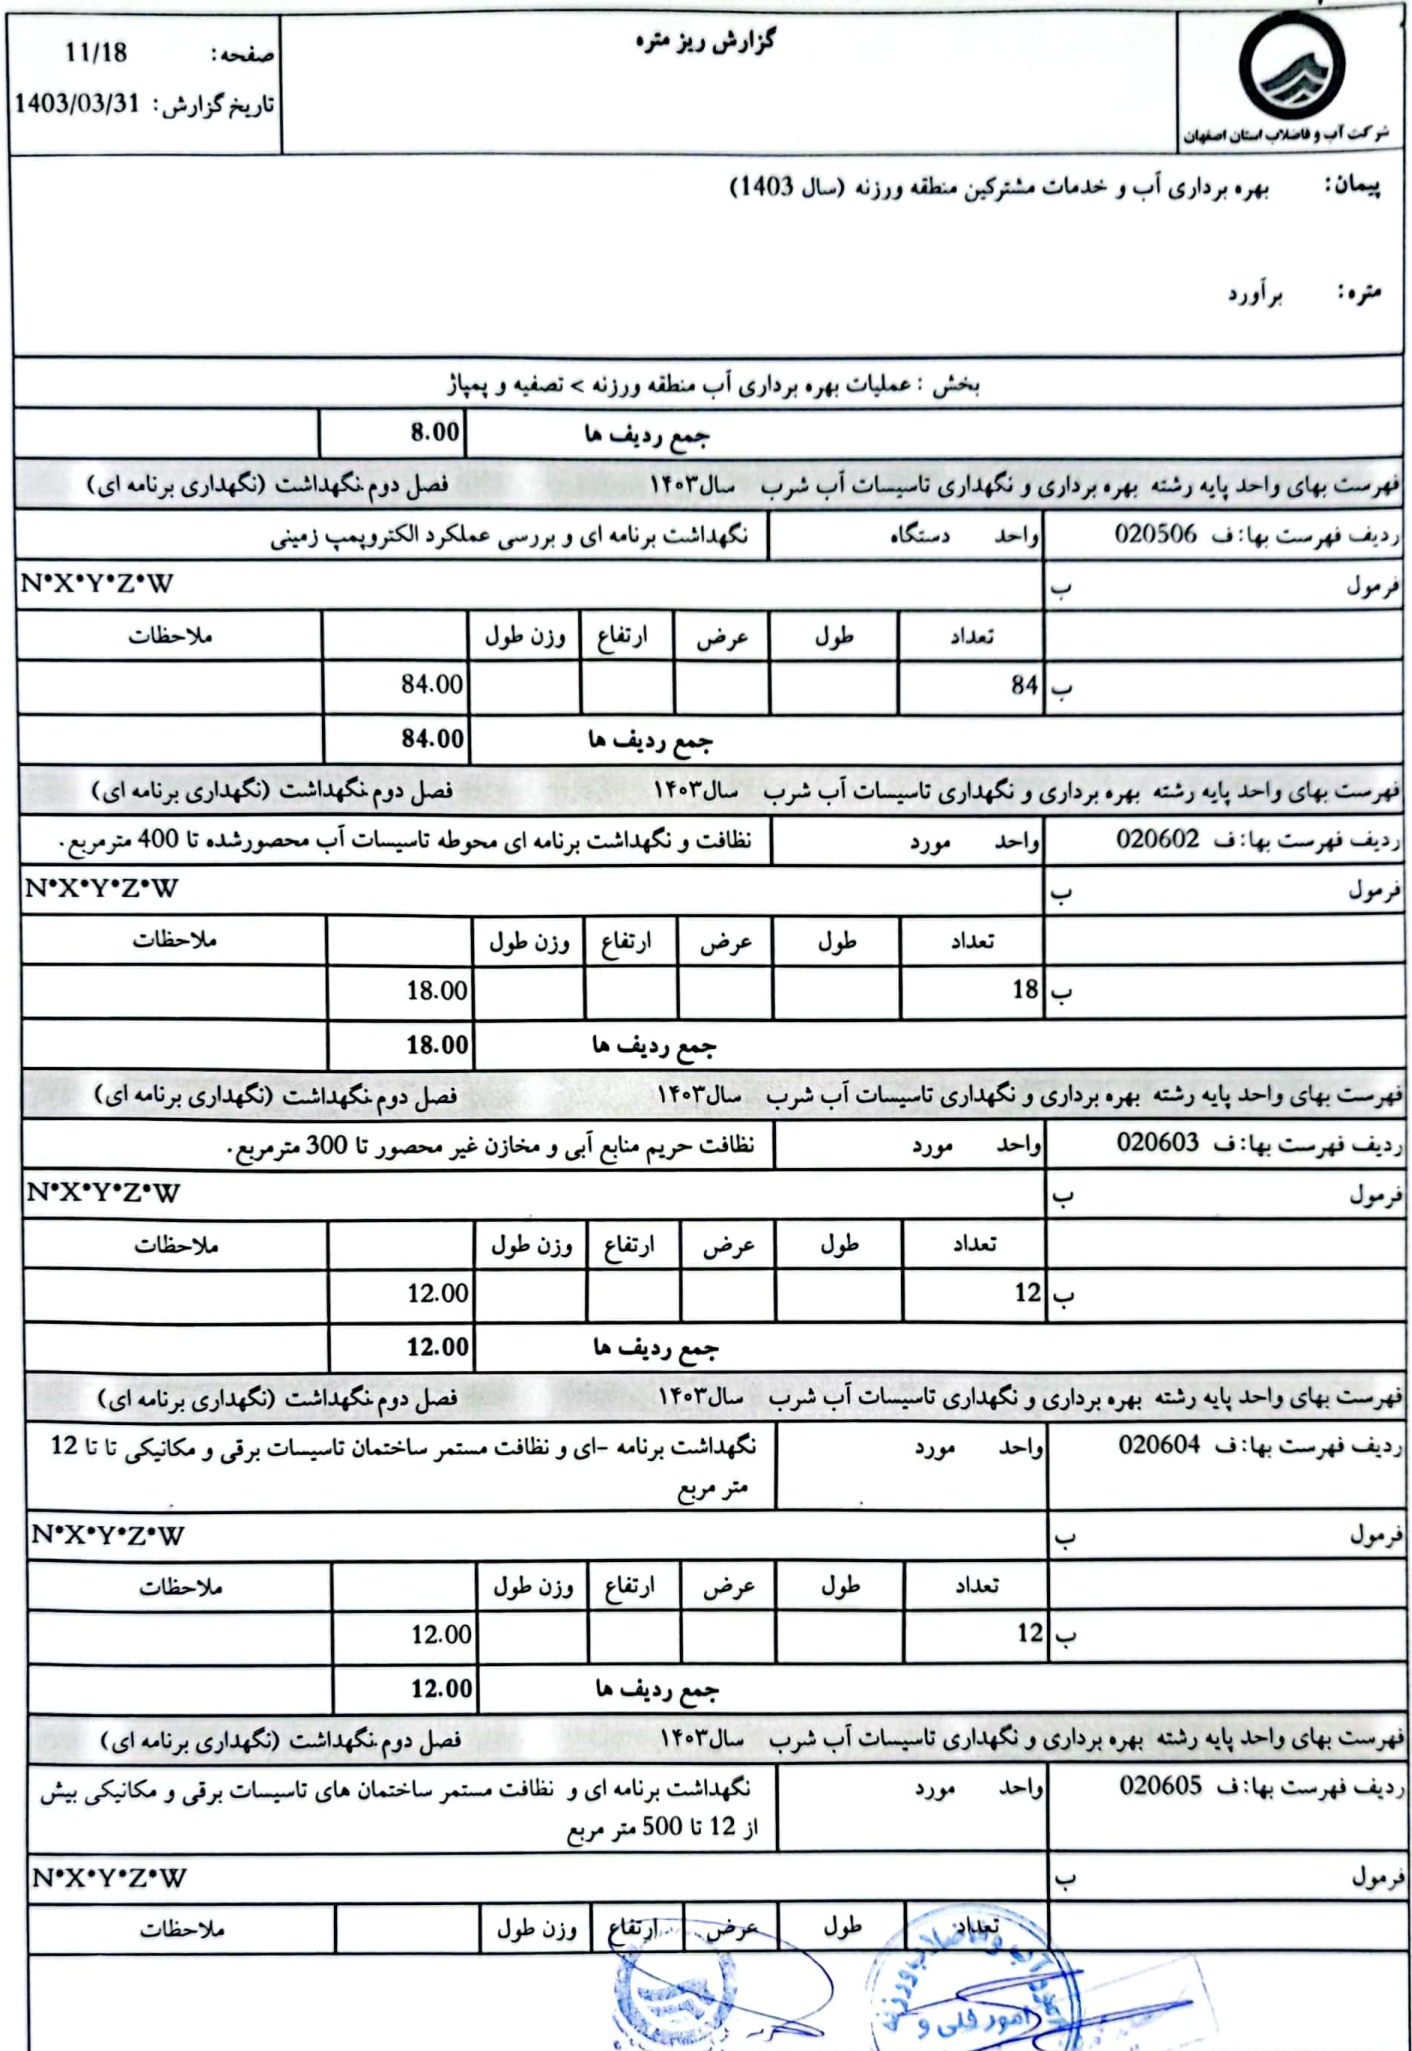 گزارش ریز متره
صفحه: 11/18
تاریخ گزارش: 1403/03/31
شرکت آب و فاضلاب استان اصفهان
پیمان: بهره برداری آب و خدمات مشترکین منطقه ورزنه (سال 1403)
متره: برآورد
بخش : عملیات بهره برداری آب منطقه ورزنه > تصفیه و پمپاژ
جمع ردیف ها 8.00
فهرست بهای واحد پایه رشته بهره برداری و نگهداری تاسیسات آب شرب سال۱۴۰۳ فصل دوم.نگهداشت (نگهداری برنامه ای)
ردیف فهرست بها: ف 020506 واحد دستگاه نگهداشت برنامه ای و بررسی عملکرد الکتروپمپ زمینی
فرمول ب N*X*Y*Z*W
تعداد طول عرض ارتفاع وزن طول ملاحظات
ب 84 84.00
جمع ردیف ها 84.00
فهرست بهای واحد پایه رشته بهره برداری و نگهداری تاسیسات آب شرب سال۱۴۰۳ فصل دوم.نگهداشت (نگهداری برنامه ای)
ردیف فهرست بها: ف 020602 واحد مورد نظافت و نگهداشت برنامه ای محوطه تاسیسات آب محصورشده تا 400 مترمربع.
فرمول ب N*X*Y*Z*W
تعداد طول عرض ارتفاع وزن طول ملاحظات
ب 18 18.00
جمع ردیف ها 18.00
فهرست بهای واحد پایه رشته بهره برداری و نگهداری تاسیسات آب شرب سال۱۴۰۳ فصل دوم.نگهداشت (نگهداری برنامه ای)
ردیف فهرست بها: ف 020603 واحد مورد نظافت حریم منابع آبی و مخازن غیر محصور تا 300 مترمربع.
فرمول ب N*X*Y*Z*W
تعداد طول عرض ارتفاع وزن طول ملاحظات
ب 12 12.00
جمع ردیف ها 12.00
فهرست بهای واحد پایه رشته بهره برداری و نگهداری تاسیسات آب شرب سال۱۴۰۳ فصل دوم.نگهداشت (نگهداری برنامه ای)
ردیف فهرست بها: ف 020604 واحد مورد نگهداشت برنامه -ای و نظافت مستمر ساختمان تاسیسات برقی و مکانیکی تا تا 12
متر مربع
فرمول ب N*X*Y*Z*W
تعداد طول عرض ارتفاع وزن طول ملاحظات
ب 12 12.00
جمع ردیف ها 12.00
فهرست بهای واحد پایه رشته بهره برداری و نگهداری تاسیسات آب شرب سال۱۴۰۳ فصل دوم.نگهداشت (نگهداری برنامه ای)
ردیف فهرست بها: ف 020605 واحد مورد نگهداشت برنامه ای و نظافت مستمر ساختمان های تاسیسات برقی و مکانیکی بیش
از 12 تا 500 متر مربع
فرمول ب N*X*Y*Z*W
تعداد طول عرض ارتفاع وزن طول ملاحظات
آب و فاضلاب ورزنه
امور فنی و